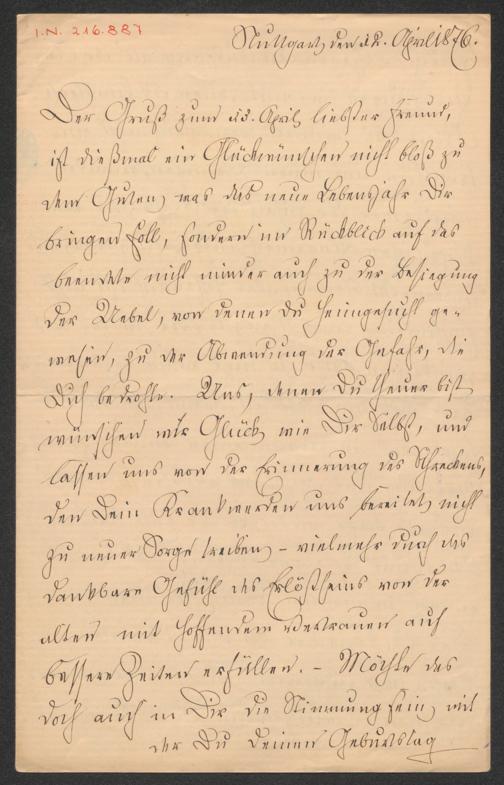 I.N. 216.887
Stuttgart, den 12. April 1876.
Der Gruß zum 13. April, liebster Freund,
ist dießmal ein Glückwünschen nicht bloß zu
dem Guten, was das neue Lebensjahr Dir
bringen soll, sondern im Rückblick auf das
beendete nicht minder auch zu der Besiegung
der Uebel, von denen Du heimgesucht ge-
wesen, zu der Abwendung der Gefahr, die
Dich bedrohte. Uns, denen Du theuer bist
wünschen wir Glück, wie Dir Selbst, und
lassen uns von der Erinnerung des Schreckens,
den Dein Krankwerden uns bereitet, nicht
zu neuer Sorge treiben, – vielmehr durch das
dankbare Gefühl des Erlöstseins von der
alten mit hoffendem Vertrauen auf
bessere Zeiten erfüllen. – Möchte das
doch auch in Dir die Stimmung sein, mit
der Du Deinen Geburtstag